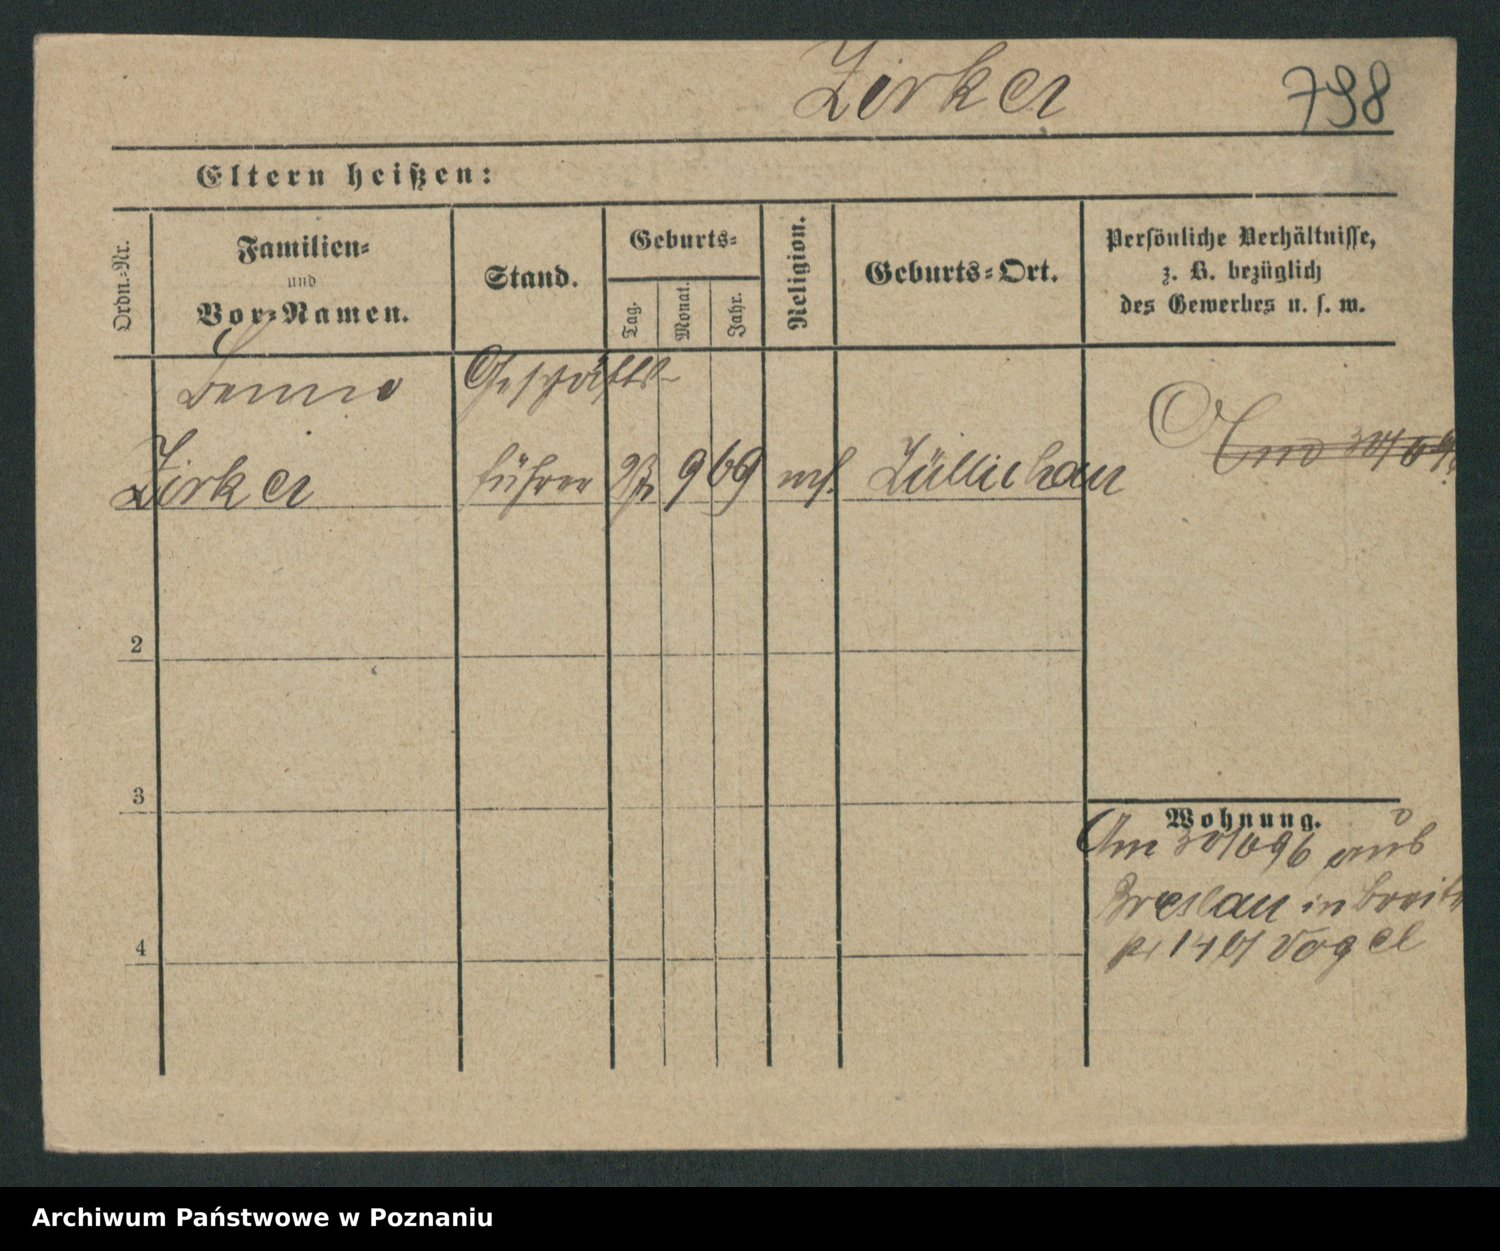 Zirker 798
Eltern heißen:
Ordn.-Nr.
Familien-
und
Vor-Namen.
Stand.
Geburts-
Tag.
Monat.
Jahr.
Religion.
Geburts-Ort.
Persönliche Verhältnisse,
z. B. bezüglich
des Gewerbes u. s. w.
Benno Geschäfts-
Zirker führer 9 69 mos. Züllichau
2
3
4
Wohnung.
Am 30/6 96 aus
Breslau in Breite
14 b/ Vogel
Archiwum Państwowe w Poznaniu